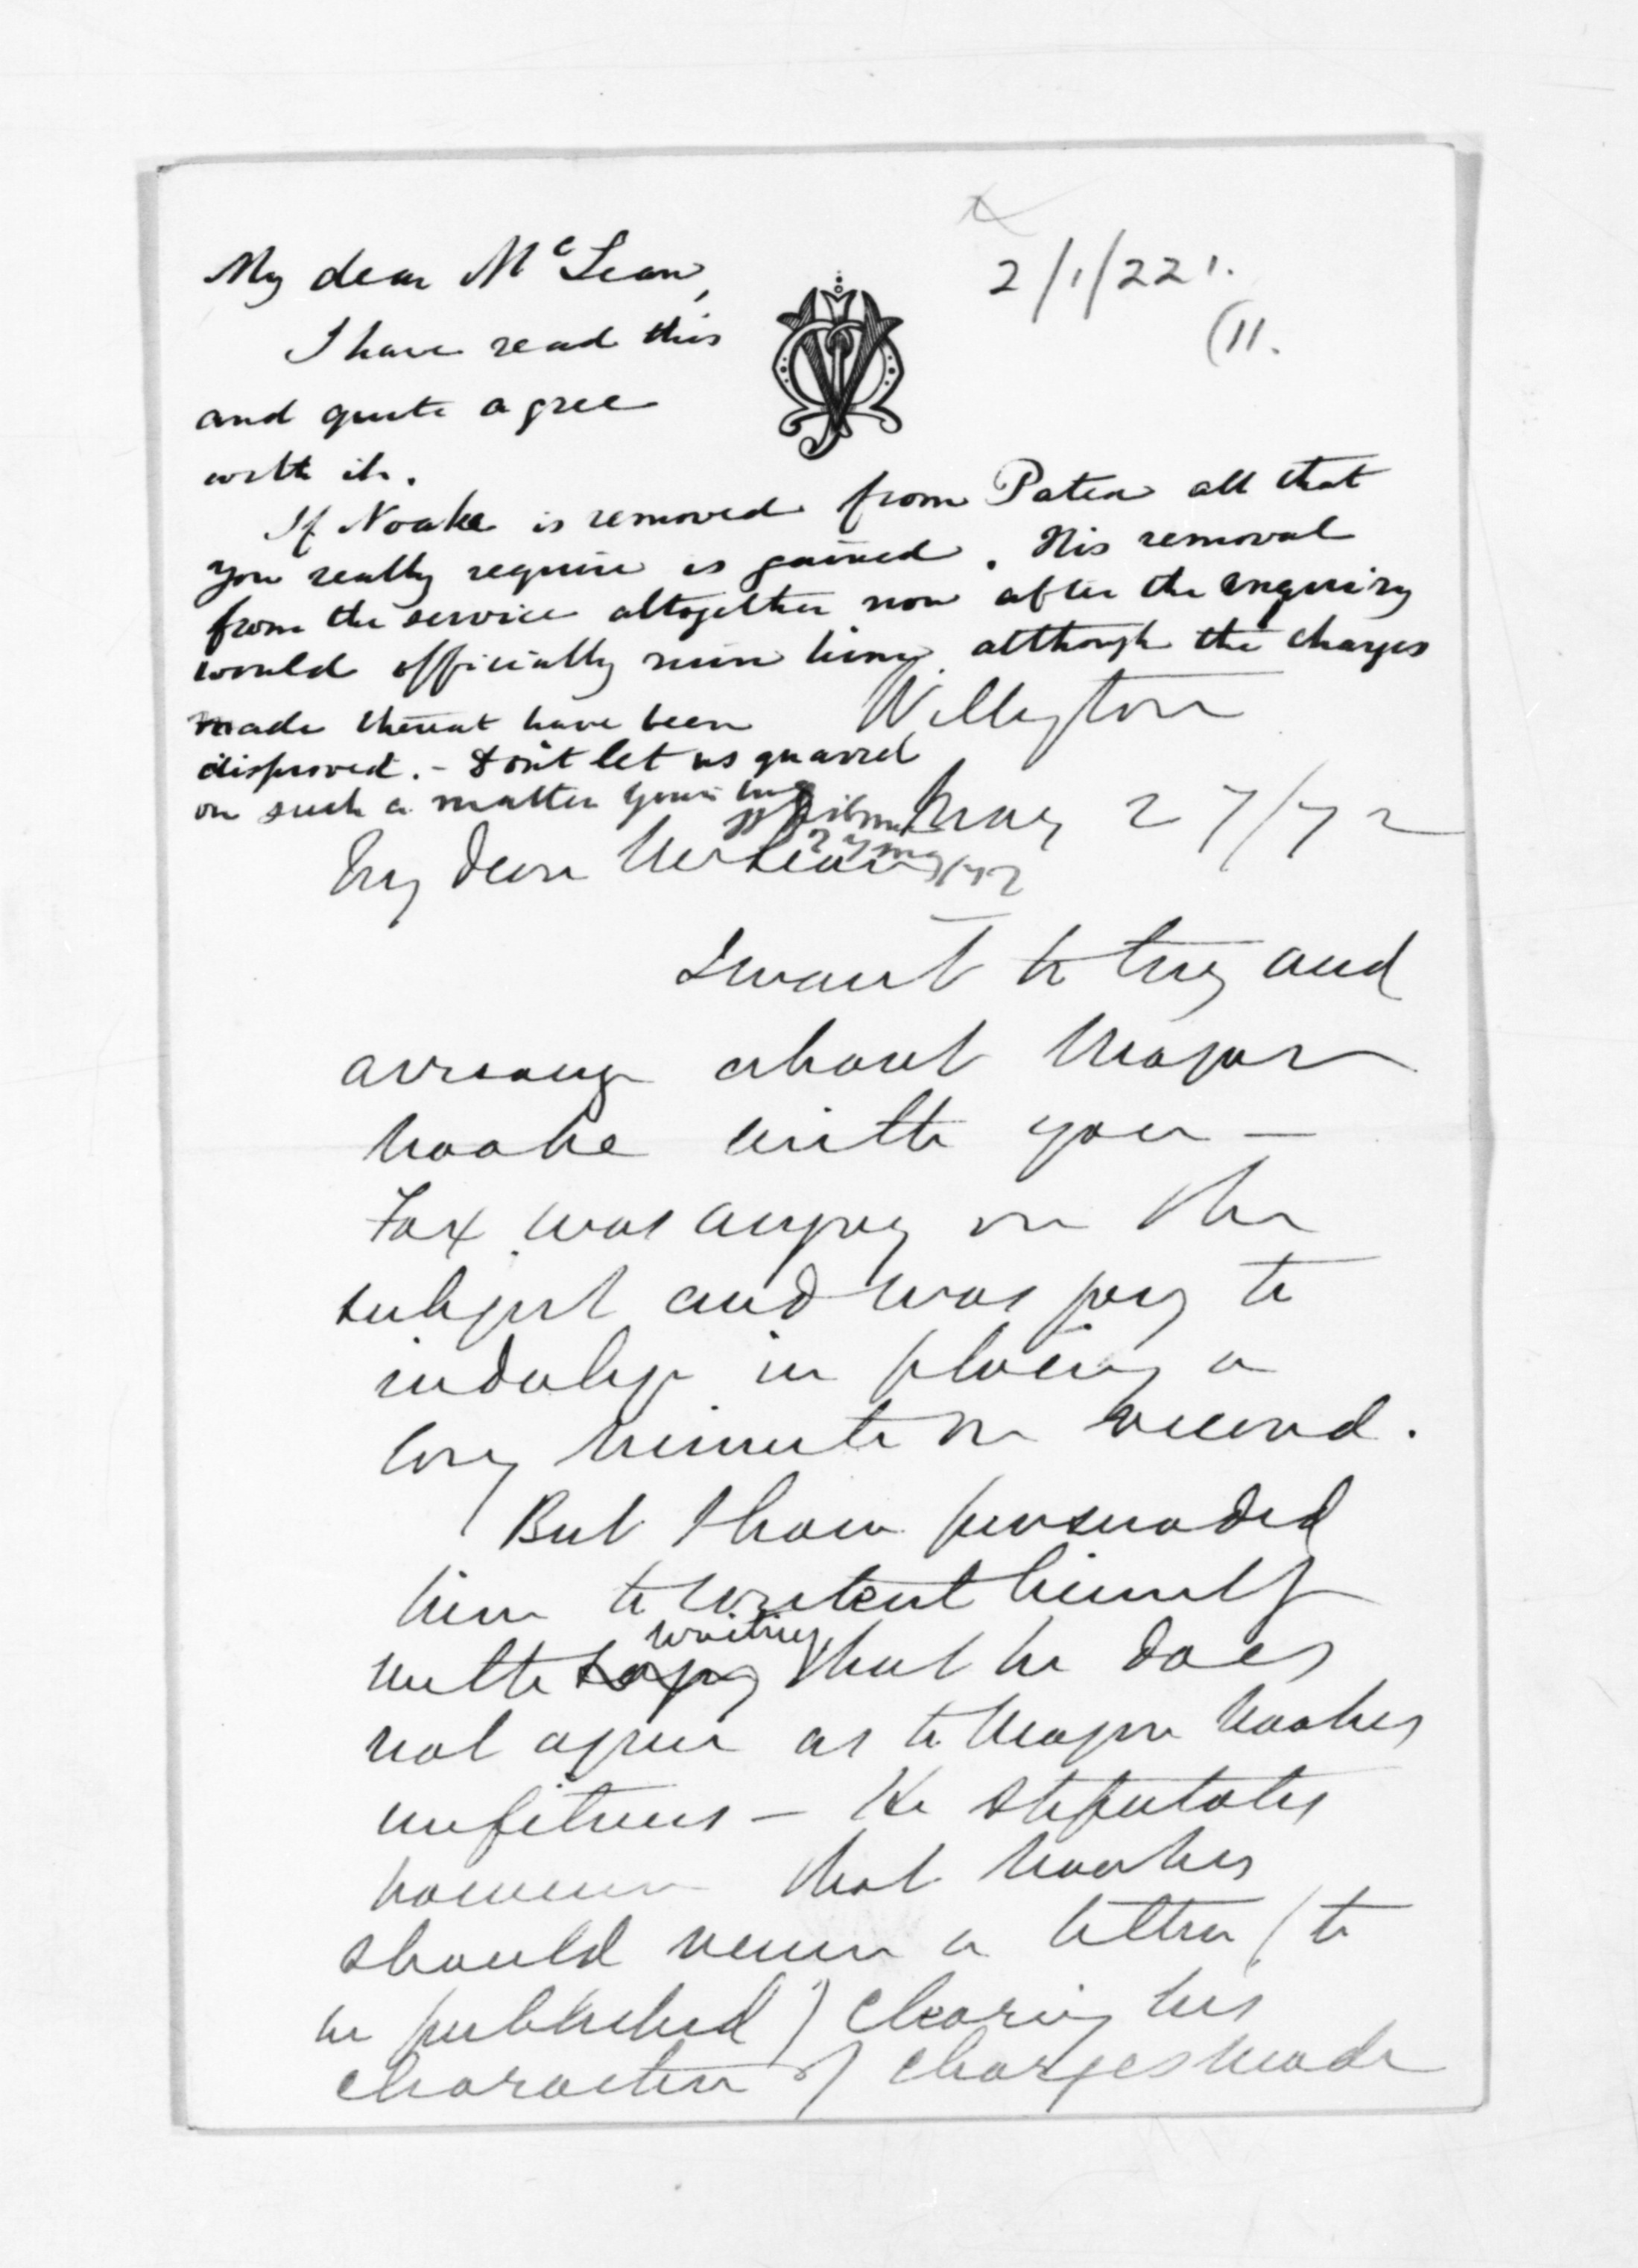 My dear McLean,
2/1/221.
(11.
I have read this
and quite agree
with it.
If Noake is removed from Patea all that
you really require is gained. His removal
from the service altogether now after the enquiry
would officially ruin him, although the charges
made thereat have been
disproved. - Don't let us quarrel
on such a matter Yours truly
27 May/72
Wellington
May 27/72
My dear McLean
I want to try and
arrange about Major
Noake with you -
Fox was angry on the
subject and was going to
indulge in placing a
long minute on record.
But I have persuaded
him to content himself
with saying writing that he does
not agree as to Major Noakes
unfitness - He stipulates
however that Noakes
should receive a letter (to
be published) clearing his
character of charges made